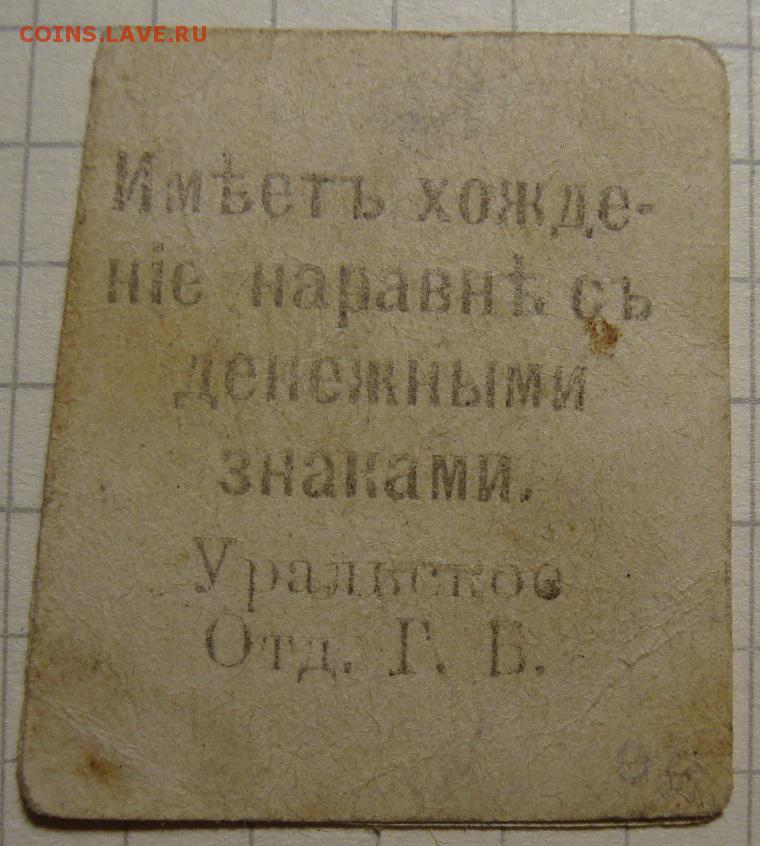 COINS.LAVE.RU
Имѣетъ хожде-
ніе наравнѣ съ
денежными
знаками.
Уральское
Отд. Г. Б.